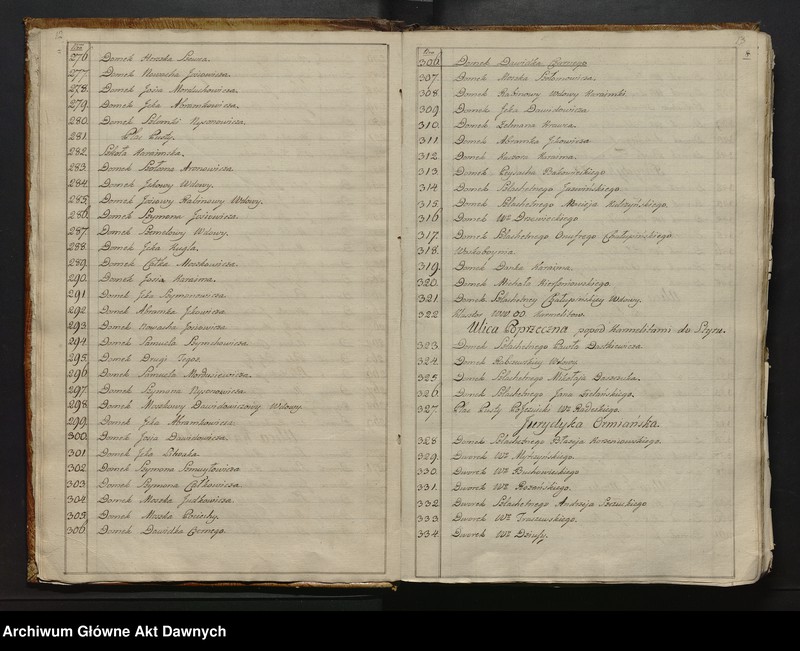 12
Nro
276 Domek Herszka Szewca.
277 Domek Nowacha Josiowicza.
278 Domek Josia Morduchowicza.
279 Domek Jcka Abramkowicza.
280 Domek Szlomki Nysonowicza.
281 Plac Pusty.
282 Szkoła Karaimska.
283 Domek Szołoma Aronowicza.
284 Domek Jckowey Wdowy.
285 Domek Josiowey Rabinowy Wdowy.
286 Domek Szymona Josiewicza.
287 Domek Wdowy.
288 Domek Jcka Kugla.
289 Domek Całka Moszkowicza.
290 Domek Josia Karaima.
291 Domek Jcka Szymonowicza.
292 Domek Abramka Jckowicza.
293 Domek Nowacha Josiowicza
294 Domek Samuela Szymchowicza.
295 Domek Drugi Tegoż.
296 Domek Samuela Mordusiewicza.
297 Domek Szymona Nysonowicza.
298 Domek Moszkowy Dawidowiczowy Wdowy.
299 Domek Jcka Abramkowicza
300 Domek Josia Dawidowicza.
301 Domek Jcka
302 Domek Szymona
303 Domek Szymona Całkowicza.
304 Domek Moszka Judkowicza.
305 Domek Moszka Pociechy.
306 Domek Dawidka Czarnego.
13
4
Nro
306 Domek Dawidka Czarnego
307. Domek Moszka Szołomowicza.
308 Domek Rabinowy Wdowy Karaimki.
309 Domek Jcka Dawidowicza
310. Domek Zelmana Krawca.
311. Domek Abramka Jckowicza
312. Domek Karaima.
313 Domek Ptysacha Bakowińskiego
314 Domek Szlachetnego Jaswińskiego.
315. Domek Szlachetnego Macieja Kulczyńskiego.
316 Domek Wo Drzewieckiego
317. Domek Szlachetnego Onufrego Czałupińskiego
318. Woskoboynia.
319. Domek Danka Karaima.
320. Domek Michała
321. Domek Szlachetney Czałupińskiey Wdowy.
322 Klasztor WW OO Karmelitów.
Ulica Poprzeczna popod Karmelitami do Styru.
323. Domek Szlachetnego Pawła
324. Domek Wdowy
325 Domek Szlachetnego Mikołaja
326. Domek Szlachetnego Jana
327 Plac Pusty Wo Radeckiego.
Jurydyka Ormiańska.
328 Domek Szlachetnego Błażeja Korzeniowskiego.
329. Dworek Wo Myszyńskiego.
330. Dworek Wo Buchowieckiego
331. Dworek Wo Rozańskiego.
332 Dworek Szlachetnego Andrzeja
333 Dworek Wo Traczewskiego.
334. Dworek Wo
Archiwum Główne Akt Dawnych